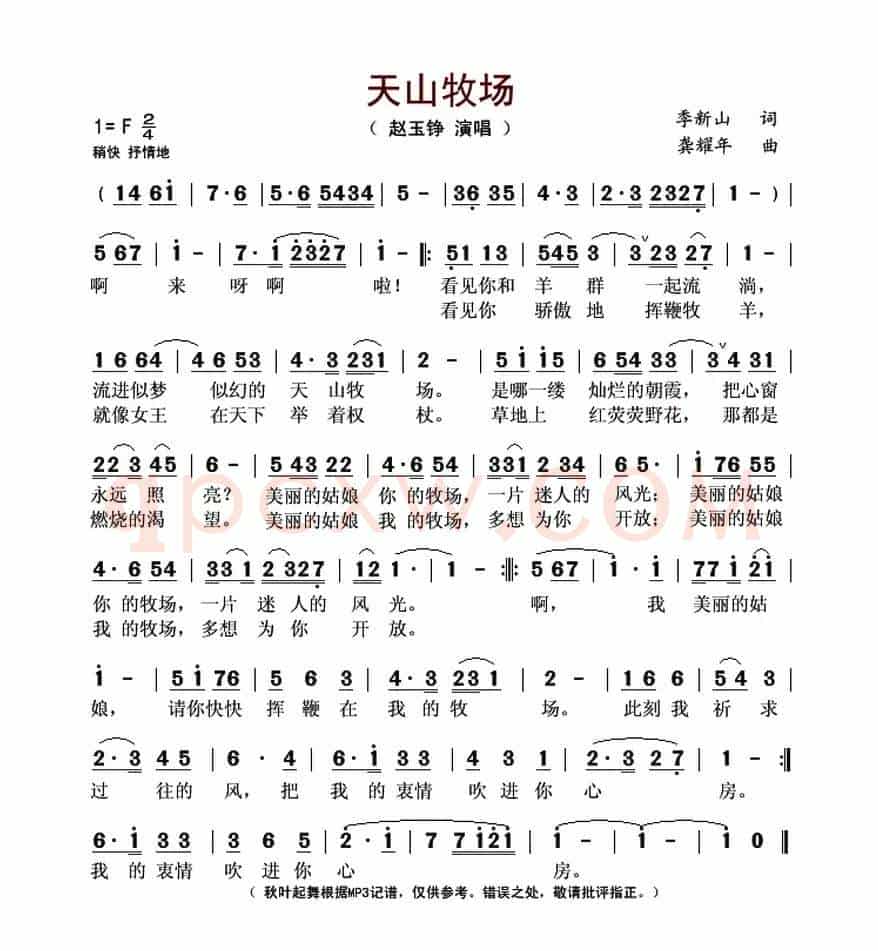 天山牧场
1=F 2/4
（ 赵玉铮 演唱 ）
季新山 词
稍快 抒情地
龚耀年 曲
( 14 61 | 7·6 | 5·6 5434 | 5 - | 36 35 | 4·3 | 2·3 2327 | 1 - ) |
5 67 | 1 - | 7· 1 2327 | 1 - |: 51 13 | 545 3 | 3 23 27 | 1 - |
啊 来 呀 啊 啦！ 看见你和 羊 群 一起流 淌，
看见你 骄傲 地 挥鞭牧 羊，
1 6 64 | 4 6 53 | 4· 3 231 | 2 - | 5 1 15 | 6 54 33 | 3 4 31 |
流进似梦 似幻的 天 山牧 场。 是哪一缕 灿烂的朝霞， 把心窗
就像女王 在天下 举 着权 杖。 草地上 红荧荧野花， 那都是
22 3 45 | 6 - | 5 43 22 | 4·6 54 | 331 2 34 | 6 5· | 1 76 55 |
永远 照 亮？ 美丽的姑娘 你 的牧场，一片 迷人的 风光； 美丽的姑娘
燃烧的渴 望。 美丽的姑娘 我 的牧场，多想 为你 开放； 美丽的姑娘
4·6 54 | 33 1 2 327 | 12 1· | 1 - :||: 5 67 | 1 1· | 77 1 21 |
你 的牧场，一片 迷 人的 风 光。 啊， 我 美丽的姑
我 的牧场，多想 为 你 开 放。
1 - | 5 1 76 | 5 6 3 | 4·3 231 | 2 - | 1 6 6 | 5 4 3 |
娘， 请你快快 挥 鞭 在 我 的 牧 场。 此刻 我 祈 求
2·3 45 | 6·4 | 6·1 33 | 4 3 1 | 2·3 27 | 1 - :||
过 往的 风，把 我 的 衷情 吹 进 你 心 房。
6·1 33 | 3 6 5 | 2·1 | 7 7121 | 1 - | 1 - | 1 0 ||
我 的 衷情 吹 进 你 心 房。
（ 秋叶起舞根据MP3记谱，仅供参考。错误之处，敬请批评指正。）
qpcxw.com